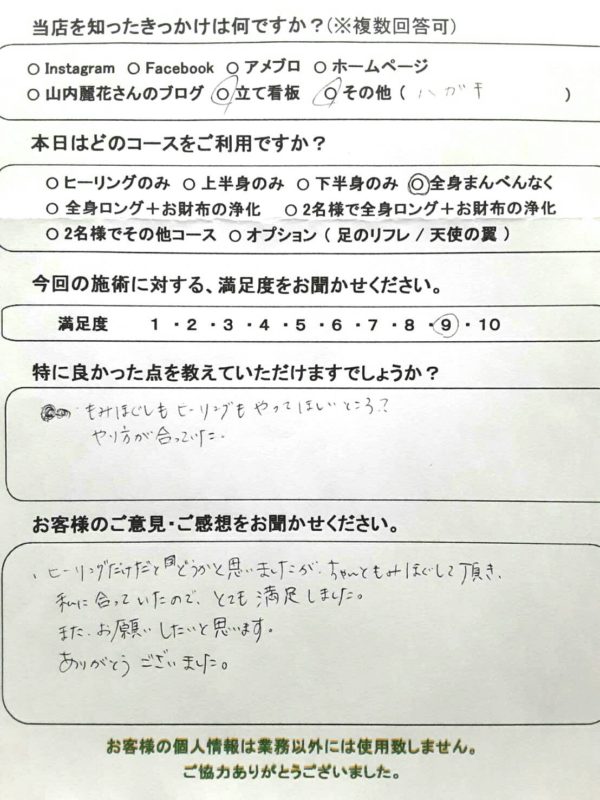 当店を知ったきっかけは何ですか？(※複数回答可)
○ Instagram ○ Facebook ○ アメブロ ○ ホームページ
○ 山内麗花さんのブログ ○ 立て看板 ○ その他 ( ハガキ )
本日はどのコースをご利用ですか？
○ ヒーリングのみ ○ 上半身のみ ○ 下半身のみ ○ 全身まんべんなく
○ 全身ロング＋お財布の浄化 ○ 2名様で全身ロング＋お財布の浄化
○ 2名様でその他コース ○ オプション ( 足のリフレ / 天使の翼 )
今回の施術に対する、満足度をお聞かせください。
満足度 1 ・ 2 ・ 3 ・ 4 ・ 5 ・ 6 ・ 7 ・ 8 ・ 9 ・ 10
特に良かった点を教えていただけますでしょうか？
もみほぐしもヒーリングもやってほしいところ？
やり方が合っていた.
お客様のご意見・ご感想をお聞かせください。
、ヒーリングだけだとどうかと思いましたが、ちゃんともみほぐして頂き、
私に合っていたので、とても満足しました。
また、お願いしたいと思います。
ありがとうございました。
お客様の個人情報は業務以外には使用致しません。
ご協力ありがとうございました。